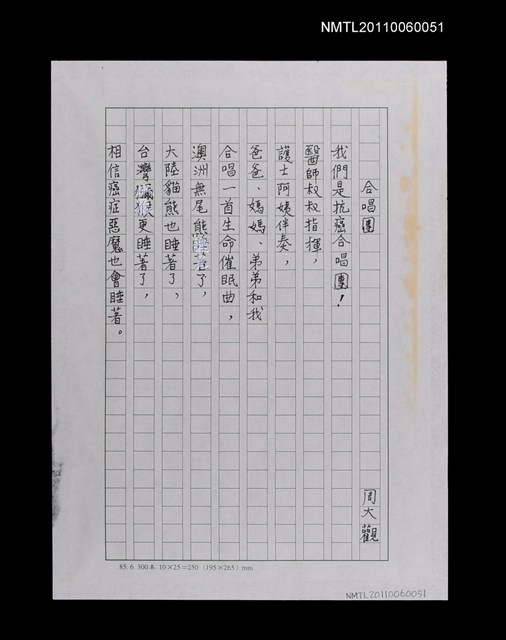 NMTL20110060051
合唱團
周大觀
我們是抗癌合唱團！
醫師叔叔指揮，
護士阿姨伴奏，
爸爸、媽媽、弟弟和我
合唱一首生命催眠曲，
澳洲無尾熊睡著了，
大陸貓熊也睡著了，
台灣獼猴更睡著了，
相信癌症惡魔也會睡著。
85. 6. 300本 10×25=250 (195×265) mm
NMTL20110060051